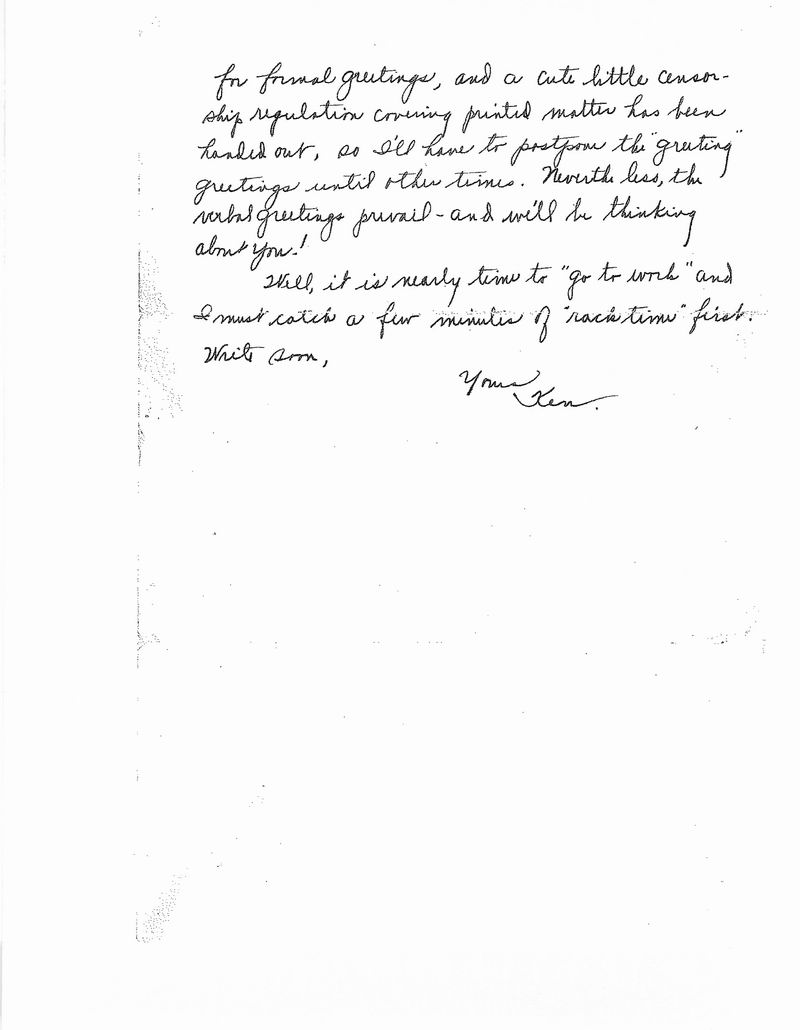 for formal greetings, and a cute little censor-
ship regulation covering printed matter has been
handed out, so I'll have to postpone the "greeting"
greetings until other times. Nevertheless, the
verbal greetings prevail - and we'll be thinking
about you!
Well, it is nearly time to "go to work" and
I must catch a few minutes of "rack time" first.
Write soon,
Yours
Ken.